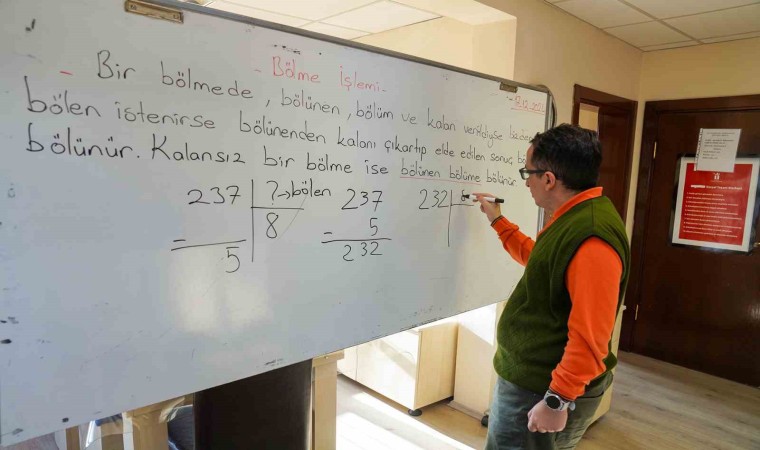 - Bölme İşlemi -
12.12.2024
- Bir bölmede, bölünen, bölüm ve kalan verildiyse bizden
bölen istenirse bölünenden kalanı çıkartıp elde edilen sonuç
bölünür. Kalansız bir bölme ise bölünen bölüme bölünür
237 ?→bölen 237 232
8 - 5
- 5 232